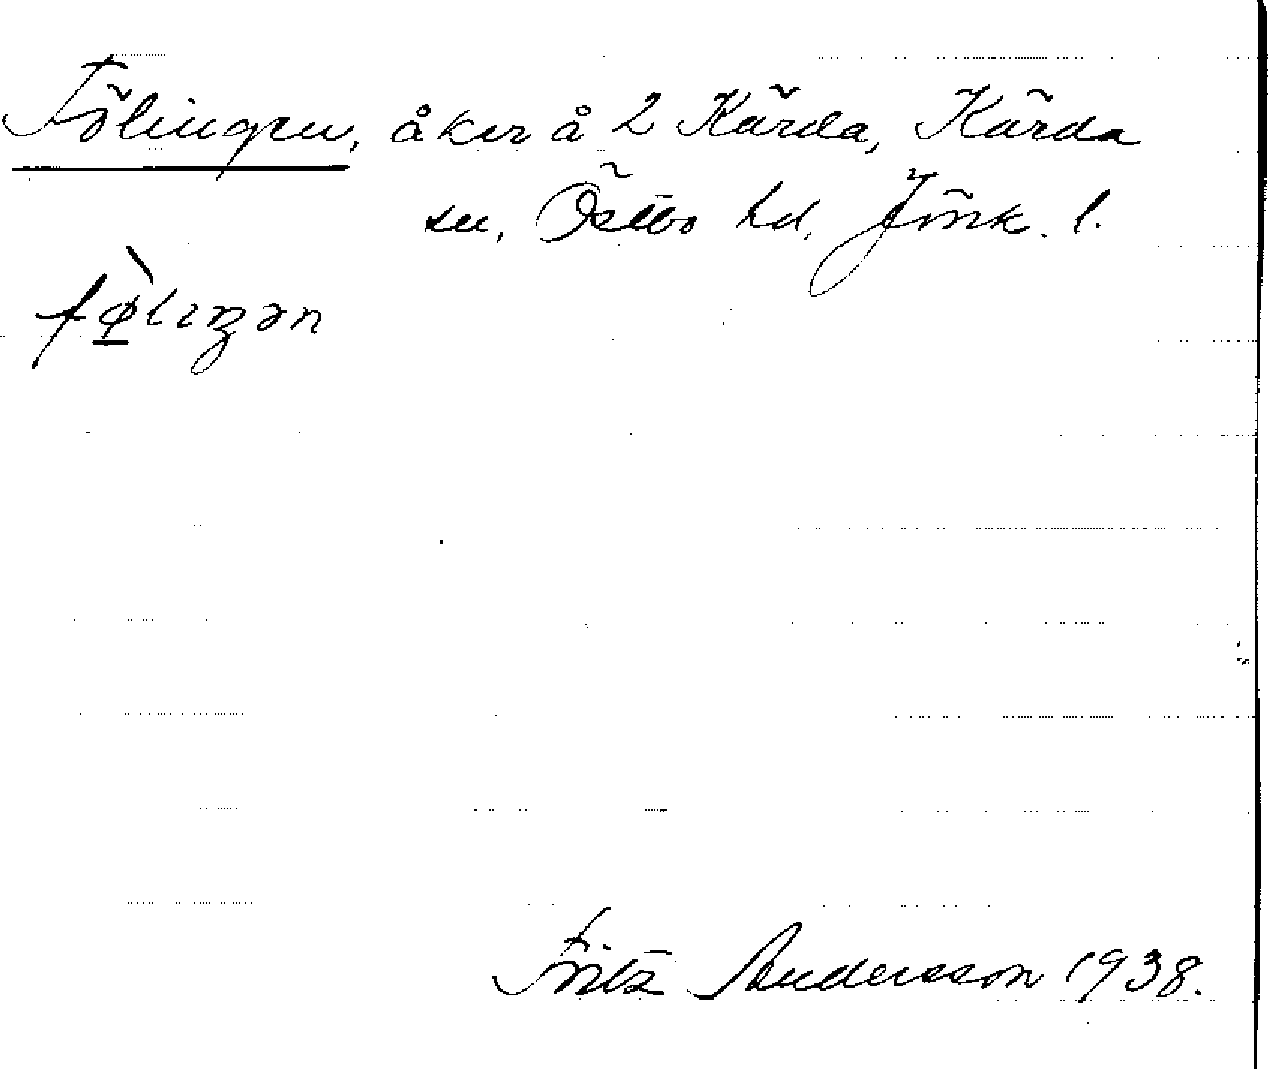 Fölingen, åker å 2 Kärda, Kärda
sn, Östbo hd, Jönk. l.
fø̲̀lıŋən
Fritz Andersson 1938.